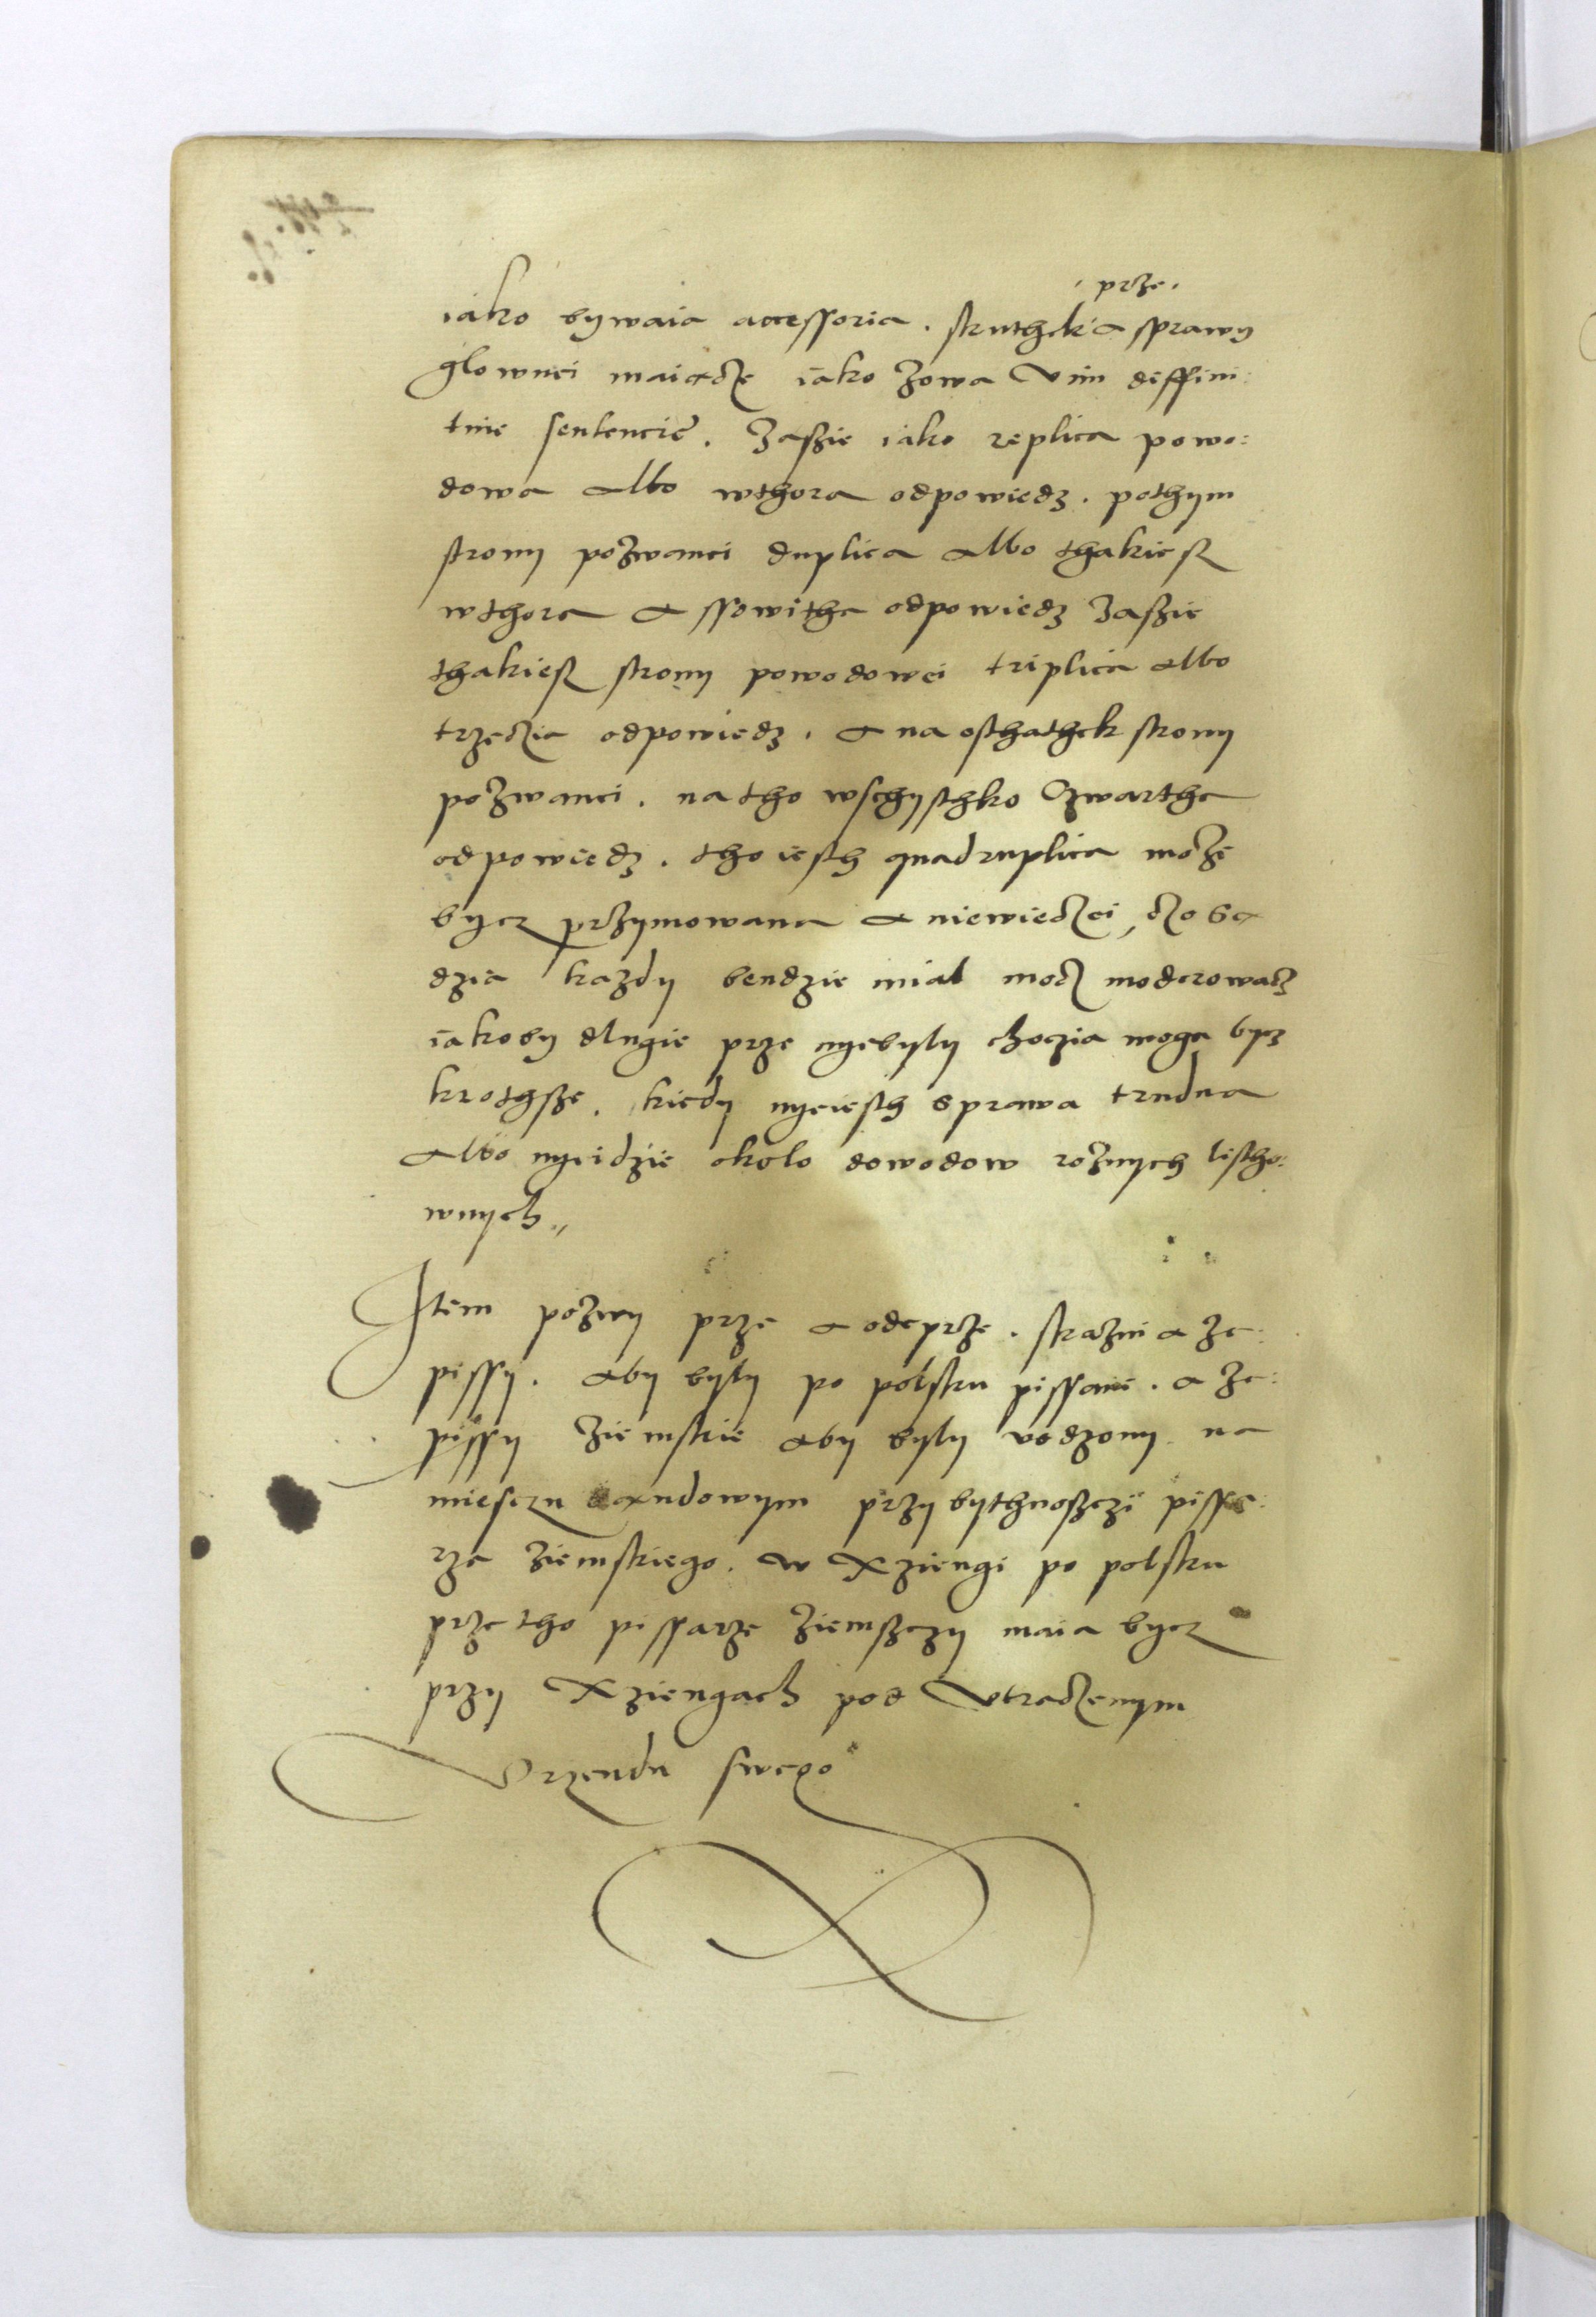 prze.
iako bywaia accessoria. skuthek a sprawy
glownei maiącze iako zowa vim diffini:
tiue sentencie. Zassie iako replica powo:
dowa albo wthora odpowiedz. pothym
strony pozwanei duplica albo thakiesz
wthora a ssowitha odpowiedz zassie
thakiesz strony powodowei triplica albo
trzeczia odpowiedz. a na osthathek strony
pozwanei. na tho wschysthko czwartha
odpowiedz. tho iesth quadruplica może
bycz przymowana a niewieczei, czo sa
dzia kazdy bendzie mial mocz moderowacz
iakoby dlugie prze nyebyly choczia moga bycz
krothsze. kiedy nyeiesth sprawa trudna
albo nyeidzie okolo dowodow roznych listho:
wnych
Item pozwy prze a odeprze. strazni a za:
pissy. aby byly po polsku pissane. a za:
pissy ziemskie aby byly vodzony na
miesczu sandowym przy bythnosczi pissa:
rza ziemskiego. w Xziengi po polsku
prze tho pissarze ziemsczy maia bycz
przy Xziengach pod vtraczenym
Vrzendu swego